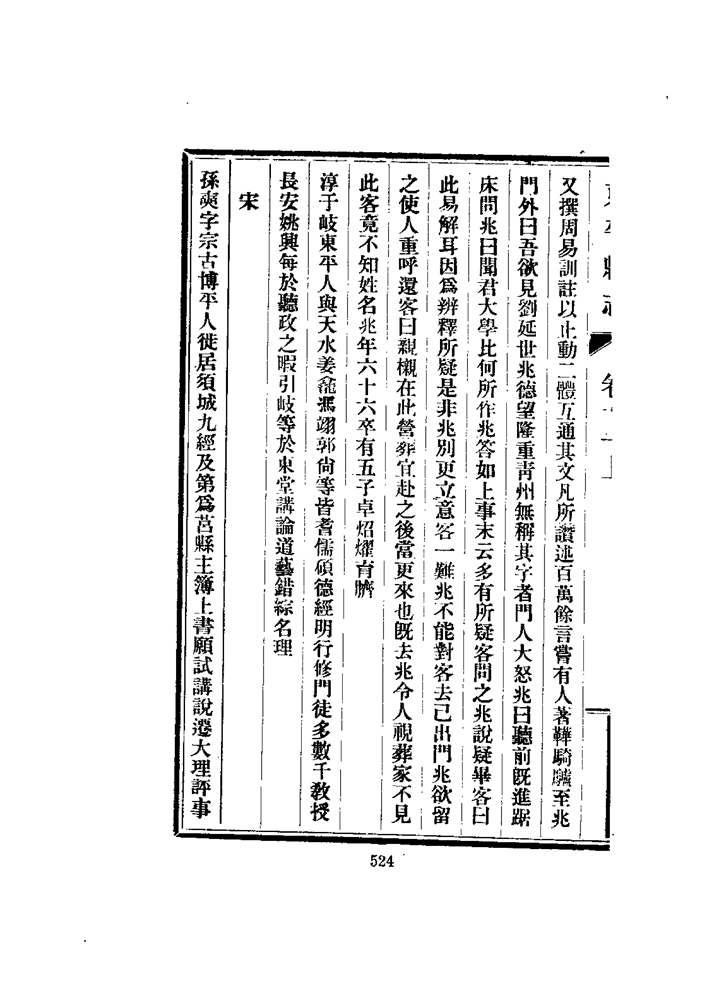 東平縣志 卷十
又撰周易訓註以正動二體互通其文凡所讚述百萬餘言嘗有人著鞾騎驢至兆
門外曰吾欲見劉延世兆德望隆重靑州無稱其字者門人大怒兆曰聽前旣進踞
床問兆曰聞君大學比何所作兆答如上事末云多有所疑客問之兆說疑畢客曰
此易解耳因爲辨釋所疑是非兆別更立意客一難兆不能對客去已出門兆欲留
之使人重呼還客曰親櫬在此營葬宜赴之後當更來也旣去兆令人視葬家不見
此客竟不知姓名兆年六十六卒有五子卓炤燿育臍
淳于岐東平人與天水姜龕馮翊郭尙等皆耆儒碩德經明行修門徒多數千敎授
長安姚興每於聽政之暇引岐等於東堂講論道藝錯綜名理
宋
孫奭字宗古博平人徙居須城九經及第爲莒縣主簿上書願試講說遷大理評事
524